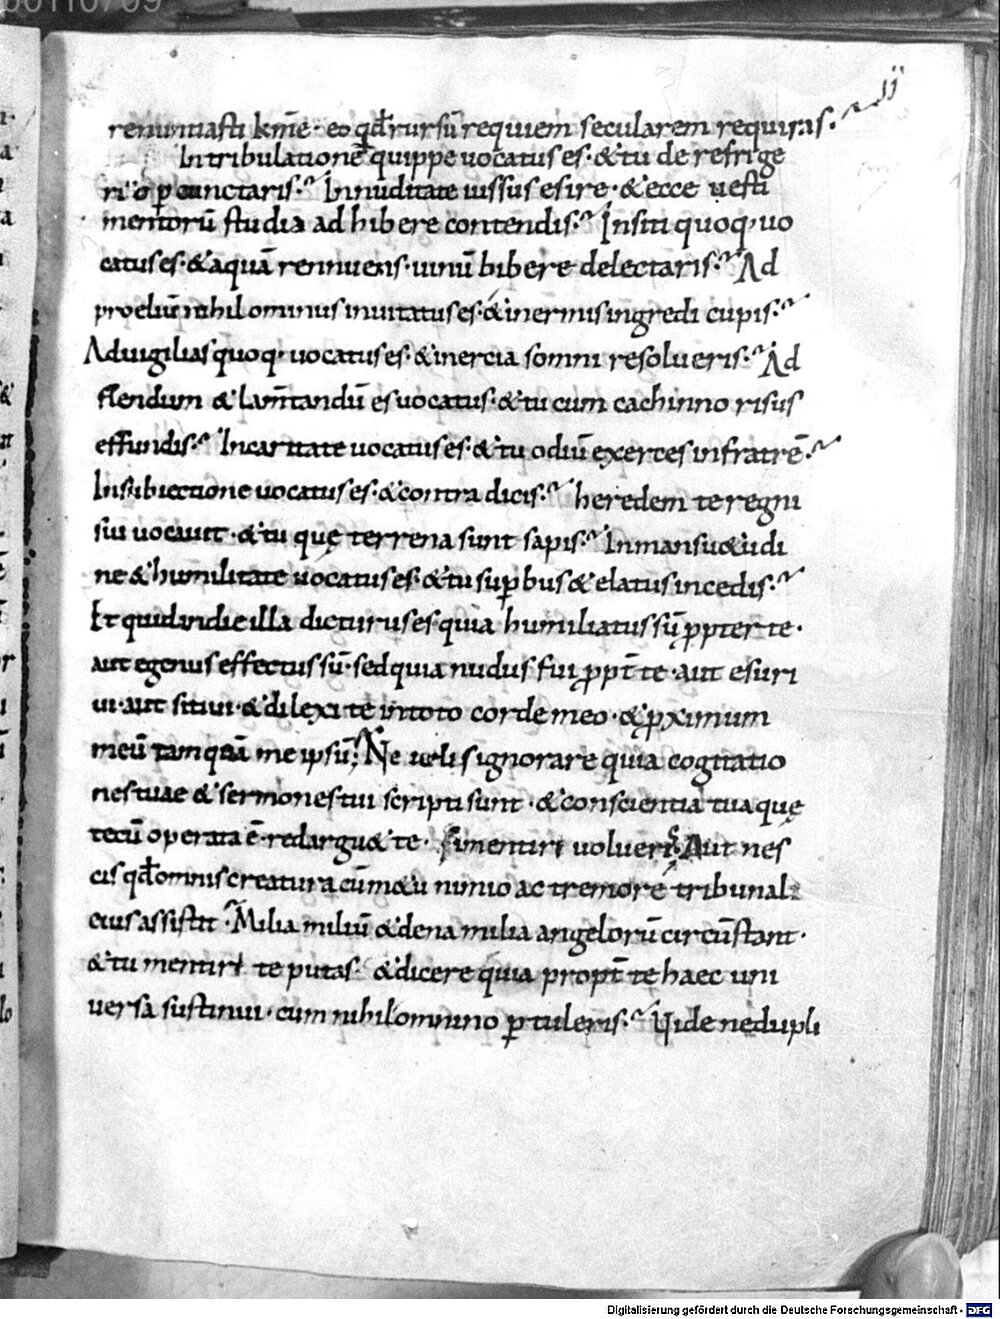 00110709
ij
renuntiasti km̄e · eo qđ rursū requiem secularem requiras.
In tribulatione quippe uocatus es · & tu de refrige
rio ꝑcunctaris. In nuditate iussus es ire · & ecce uesti
mentorū studia adhibere contendis. In siti quoq; uo
catus es · & aquā rennuens · uinū bibere delectaris. Ad
proeliū nihilominus inuitatus es · & inermis ingredi cupis.
Ad uigilias quoq; uocatus es · & inercia somni resolueris. Ad
flendum & lam̄tandū es uocatus · & tu cum cachinno risus
effundis. In caritate uocatus es · & tu odiū exerces in fratrē.
In subiectione uocatus es · & contradicis. heredem te regni
sui uocauit · & tu quę terrena sunt sapis. In mansu&udi
ne & humilitate uocatus es · & tu suꝑbus & elatus incedis.
Et quid in die illa dicturus es quia humiliatus sū ꝓpter te ·
aut egenus effectus sū · sed quia nudus fui ꝓpt̄ te · aut esuri
ui · aut sitiui · & dilexi te in toto corde meo · & ꝓximum
meū tamquā me ipsū; Ne uelis ignorare quia cogitatio
nes tuae & sermones tui scripti sunt · & conscientia tua quę
tecū operata ē · redargu& te · si mentiri uolueris. Aut nes
cis qđ omnis creatura cū m&u nimio ac tremore tribunali
eius assistit. Milia miliū & dena milia angelorū circūstant ·
& tu mentiri te putas · & dicere quia propt̄ te haec uni
uersa sustinui · cum nihil omnino ꝑtuleris. Uide ne dupli
Digitalisierung gefördert durch die Deutsche Forschungsgemeinschaft - DFG